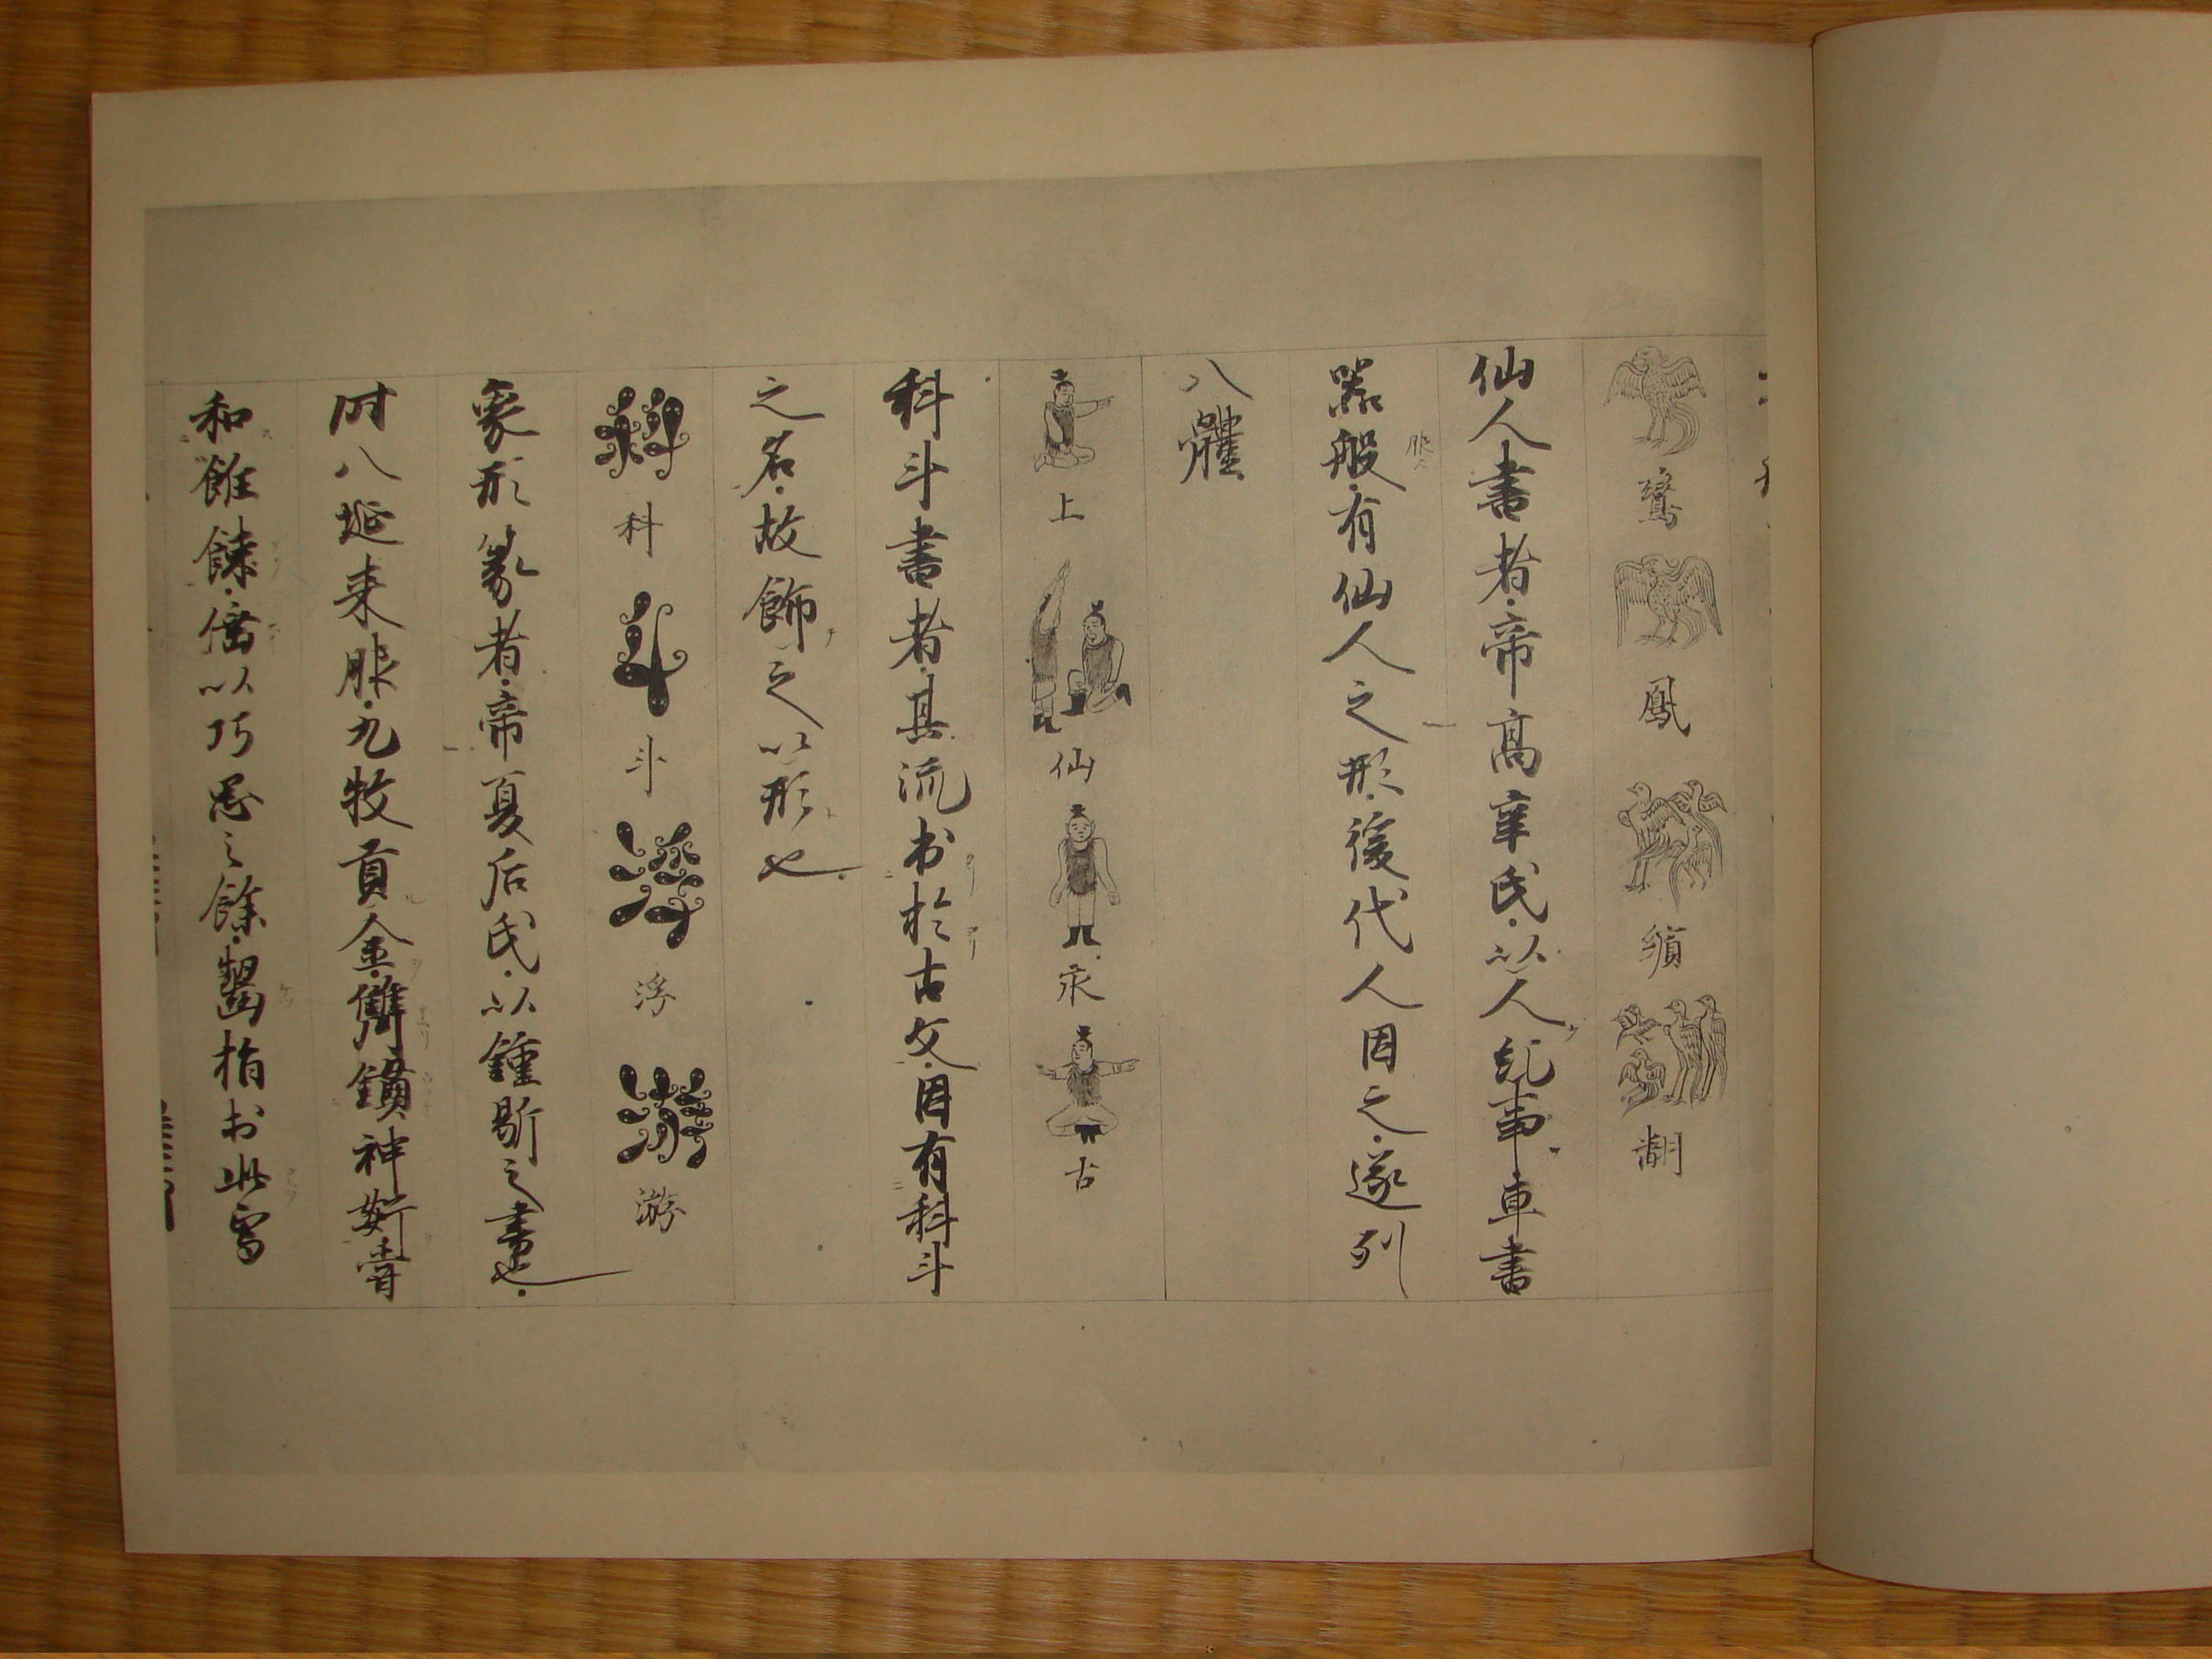 鸞鳳繽翻
仙人書者帝高辛氏以人紀事車書
器般有仙人之形後代人因之遂列
服
八體
上仙永古
科斗書者其流出於古文因有科斗
之名故飾之以形也
科斗浮游
象形篆者帝夏后氏以鍾鼎之書也
时八埏来服九牧貢金鑄鼎神姧
和餗以巧思之餘齧指出此寫